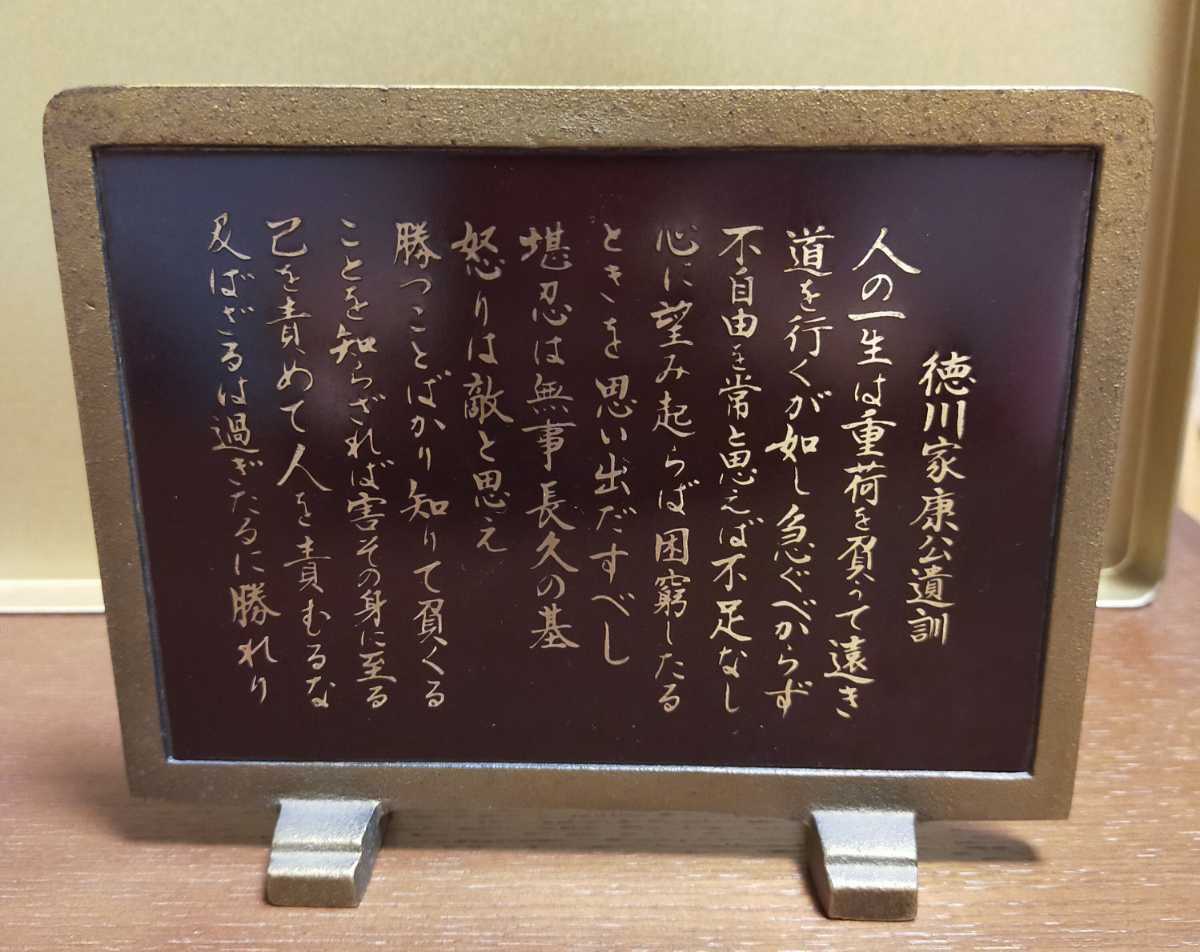 徳川家康公遺訓
人の一生は重荷を負って遠き
道を行くが如し急ぐべからず
不自由を常と思えば不足なし
心に望み起らば困窮したる
ときを思い出だすべし
堪忍は無事長久の基
怒りは敵と思え
勝つことばかり知りて負くる
ことを知らざれば害その身に至る
己を責めて人を責むるな
及ばざるは過ぎたるに勝れり